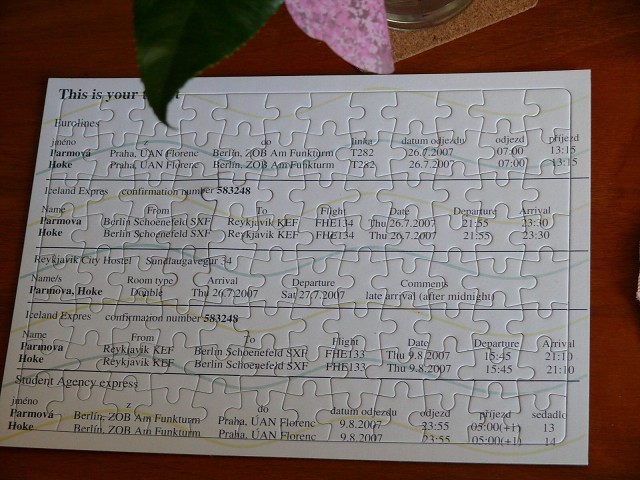 This is your
Eurolines
jméno z do linka datum odjezdu odjezd příjezd
Parmová Praha, ÚAN Florenc Berlín, ZOB Am Funkturm T282 26.7.2007 07:00 13:15
Hoke Praha, ÚAN Florenc Berlín, ZOB Am Funkturm T282 26.7.2007 07:00 13:15
Iceland Expres confirmation number 583248
Name From To Flight Date Departure Arrival
Parmova Berlin Schoenefeld SXF Reykjavik KEF FHE134 Thu 26.7.2007 21:55 23:30
Hoke Berlin Schoenefeld SXF Reykjavik KEF FHE134 Thu 26.7.2007 21:55 23:30
Reykjavik City Hostel Sundlaugavegur 34
Name/s Room type Arrival Departure Comments
Parmova, Hoke Double Thu 26.7.2007 Sat 27.7.2007 late arrival (after midnight)
Iceland Expres confirmation number 583248
Name From To Flight Date Departure Arrival
Parmova Reykjavik KEF Berlin Schoenefeld SXF FHE133 Thu 9.8.2007 15:45 21:10
Hoke Reykjavik KEF Berlin Schoenefeld SXF FHE133 Thu 9.8.2007 15:45 21:10
Student Agency express
jméno z do datum odjezdu odjezd příjezd sedadlo
Parmová Berlín, ZOB Am Funkturm Praha, ÚAN Florenc 9.8.2007 23:55 05:00(+1) 13
Hoke Berlín, ZOB Am Funkturm Praha, ÚAN Florenc 9.8.2007 23:55 05:00(+1) 14